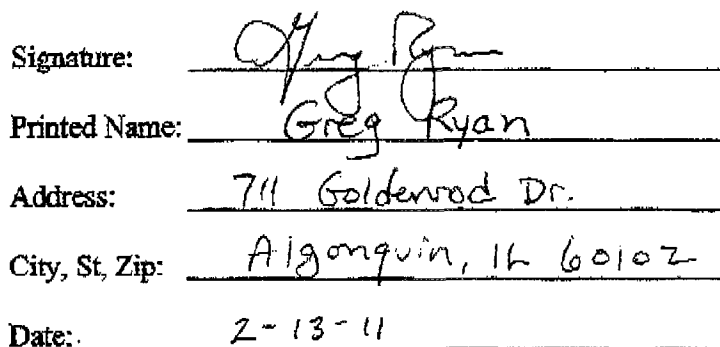 Signature: Greg Ryan
Printed Name: Greg Ryan
Address: 711 Goldenrod Dr.
City, St, Zip: Algonquin, IL 60102
Date: 2-13-11